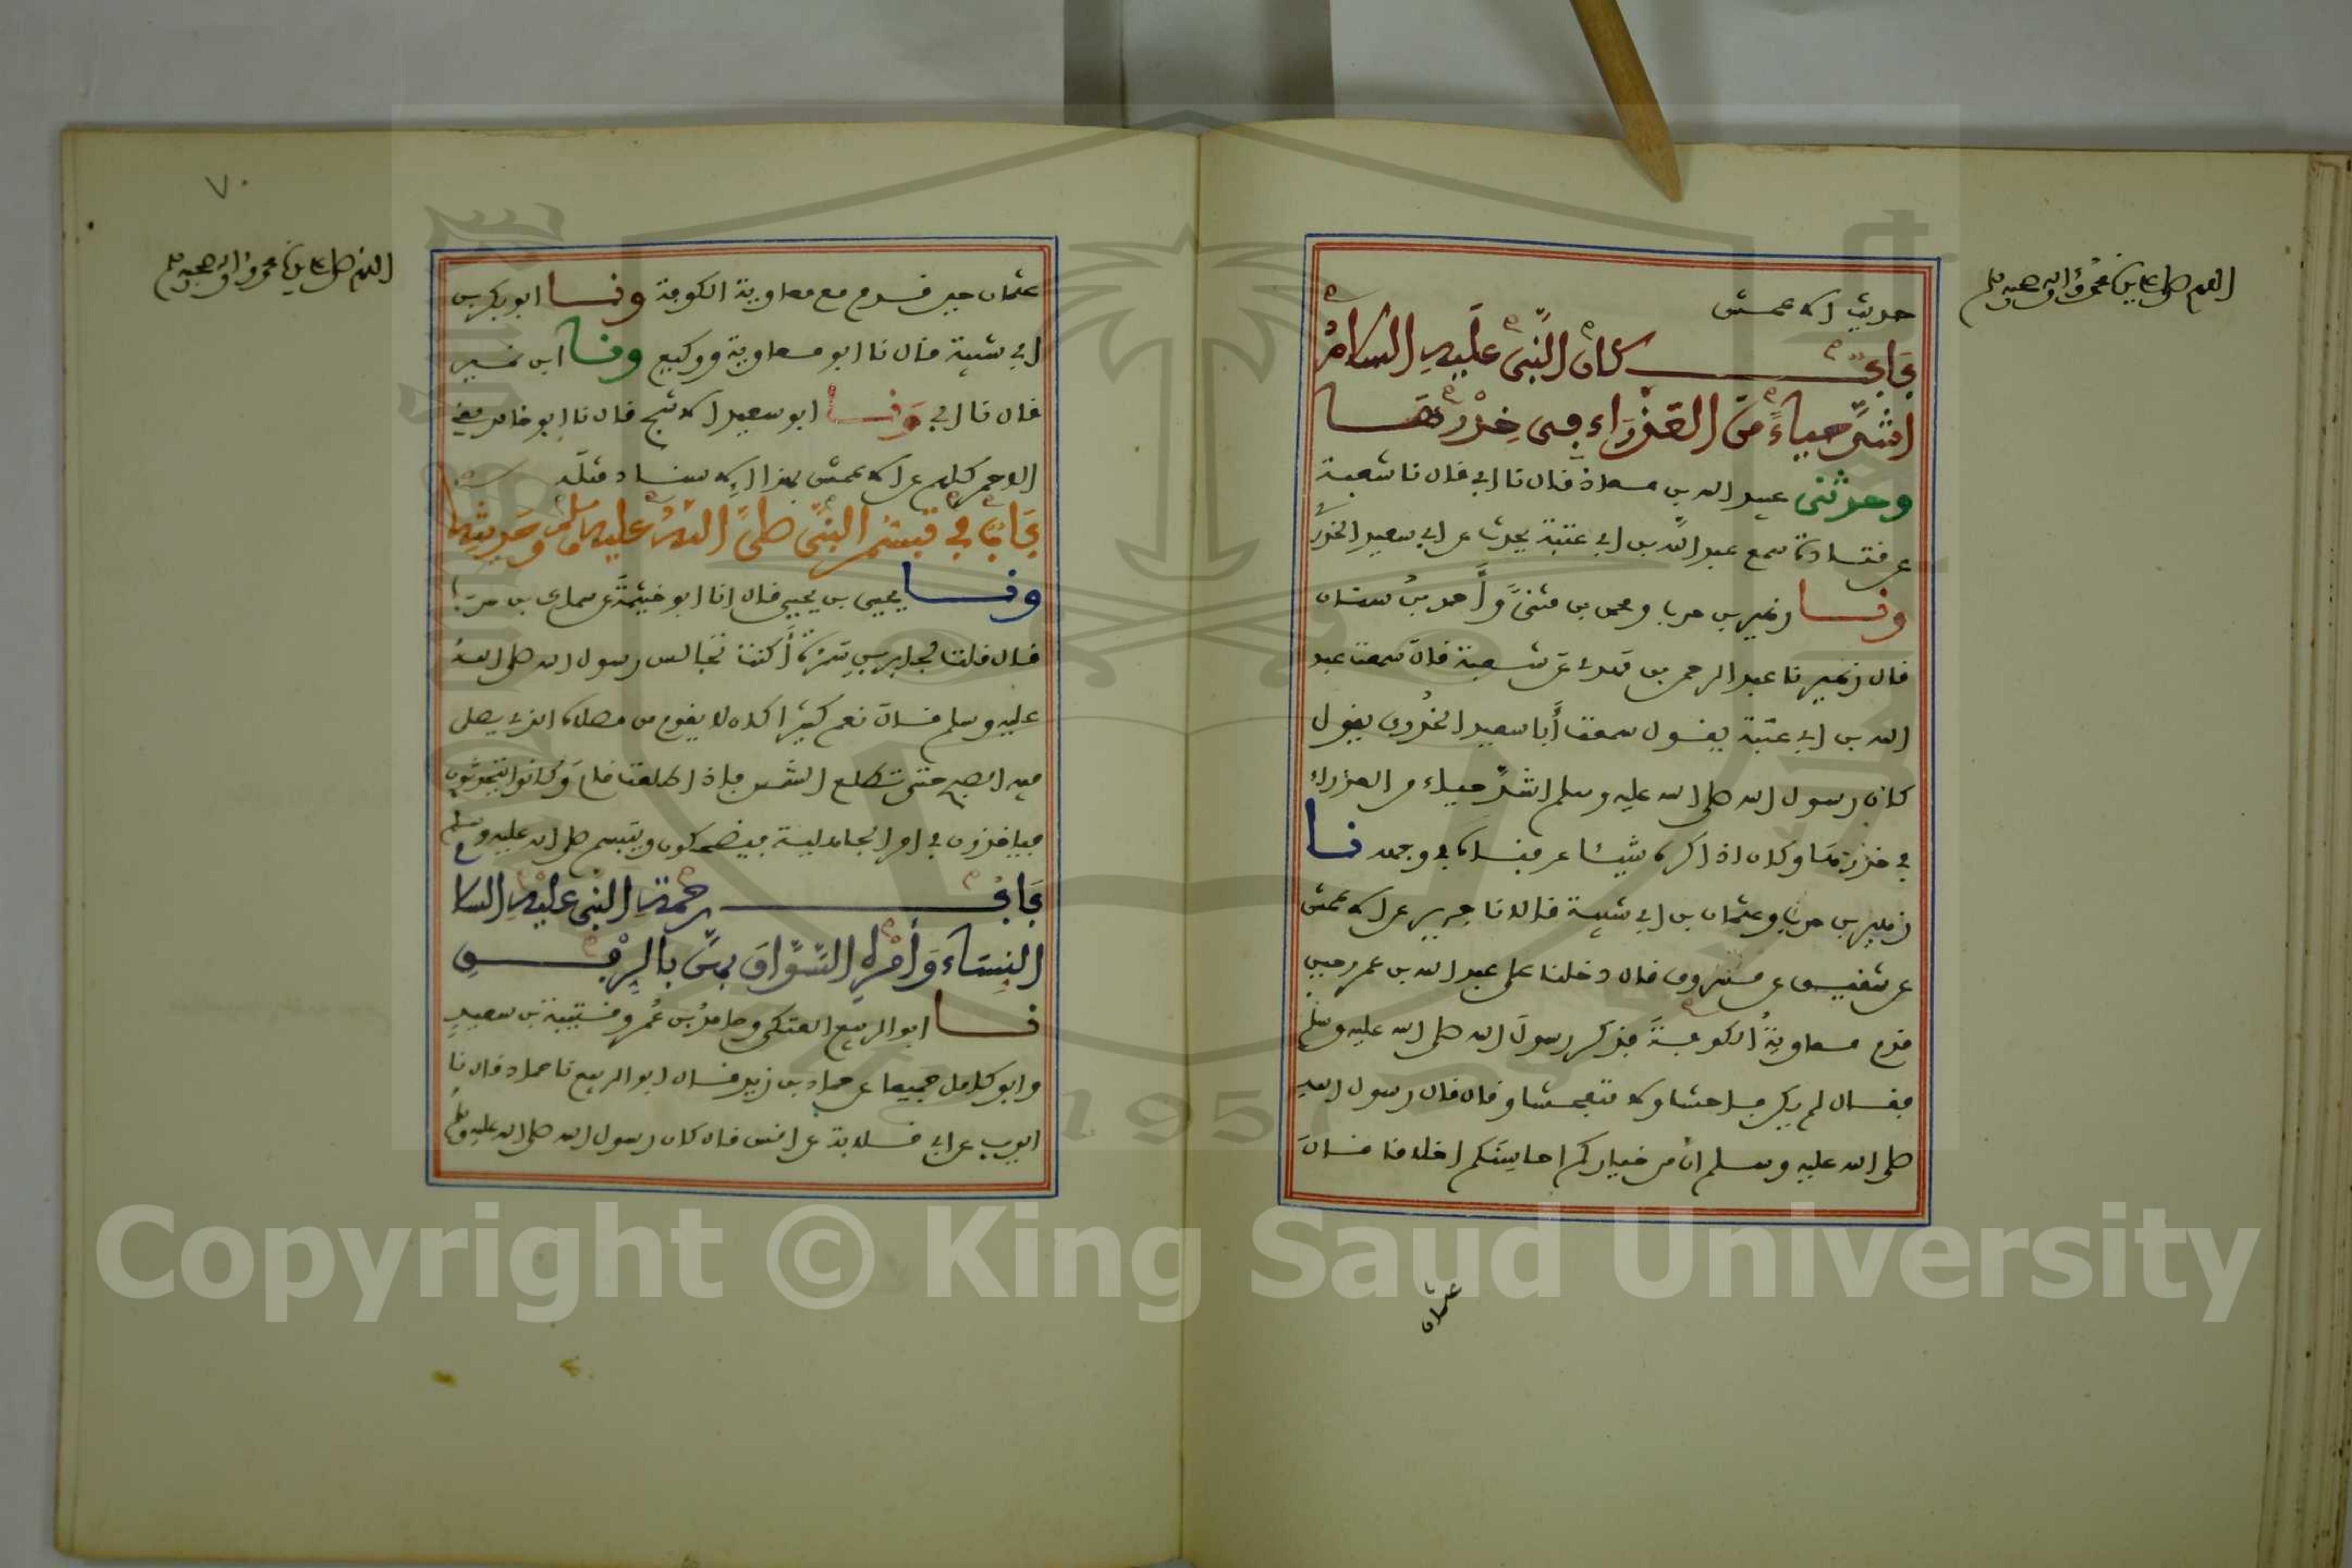 اللهم صل على سيدنا محمد وءاله وصحبه وسلم
حديث الاعمش
باب كان النبي عليه السلام
اشد حياء من العذراء في خدرها
وحدثني عبيد الله بن معاذ قال نا ابي قال نا شعبة
عن قتادة سمع عبد الله بن ابي عتبة يحدث عن ابي سعيد الخدري
ونا زهير بن حرب ومحمد بن مثنى وأحمد بن سنان
قال زهير نا عبد الرحمن بن مهدي عن شعبة قال سمعت عبد
الله بن ابي عتبة يقول سمعت أبا سعيد الخدري يقول
كان رسول الله صلى الله عليه وسلم اشد حياء من العذراء
في خدرها وكان اذا كره شيئا عرفناه في وجهه نا
زهير بن حرب وعثمان بن ابي شيبة قالا نا جرير عن الاعمش
عن شقيق عن مسروق قال دخلنا على عبد الله بن عمرو حين
قدم معاوية الكوفة فذكر رسول الله صلى الله عليه وسلم
فقال لم يكن فاحشا ولا متفحشا وقال قال رسول الله
صلى الله عليه وسلم ان من خياركم احاسنكم اخلاقا قال
عثمان
٧٠
اللهم صل على سيدنا محمد وءاله وصحبه وسلم
عثمان حين قدم مع معاوية الكوفة ونا ابو بكر بن
ابي شيبة قال نا ابو معاوية ووكيع ونا ابن نمير
قال نا ابي ونا ابو سعيد الاشج قال نا ابو خالد يعني
الاحمر كلهم عن الاعمش بهذا الاسناد مثله
باب في تبسم النبي صلى الله عليه وسلم وحديثه
ونا يحيى بن يحيى قال انا ابو خيثمة عن سماك بن حرب
قال قلت لجابر بن سمرة أكنت تجالس رسول الله صلى الله
عليه وسلم قال نعم كثيرا كان لا يقوم من مصلاه الذي يصلي
فيه الصبح حتى تطلع الشمس فاذا طلعت قام وكانوا يتحدثون
فياخذون في امر الجاهلية فيضحكون ويتبسم صلى الله عليه وسلم
باب رحمة النبي عليه السلا
النساء وأمره السواق بهن بالرفق
نا ابو الربيع العتكي وحامد بن عمر وقتيبة بن سعيد
وابو كامل جميعا عن حماد بن زيد قال ابو الربيع نا حماد قال نا
ايوب عن ابي قلابة عن انس قال كان رسول الله صلى الله عليه وسلم
1957
Copyright © King Saud University